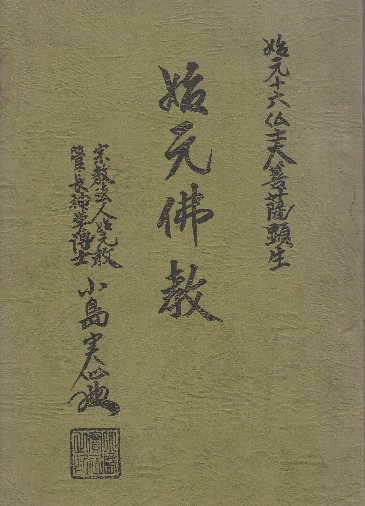 始元十六仏夫人菩薩顕生
始元佛教
宗教法人始元教
管長神学博士
小島実